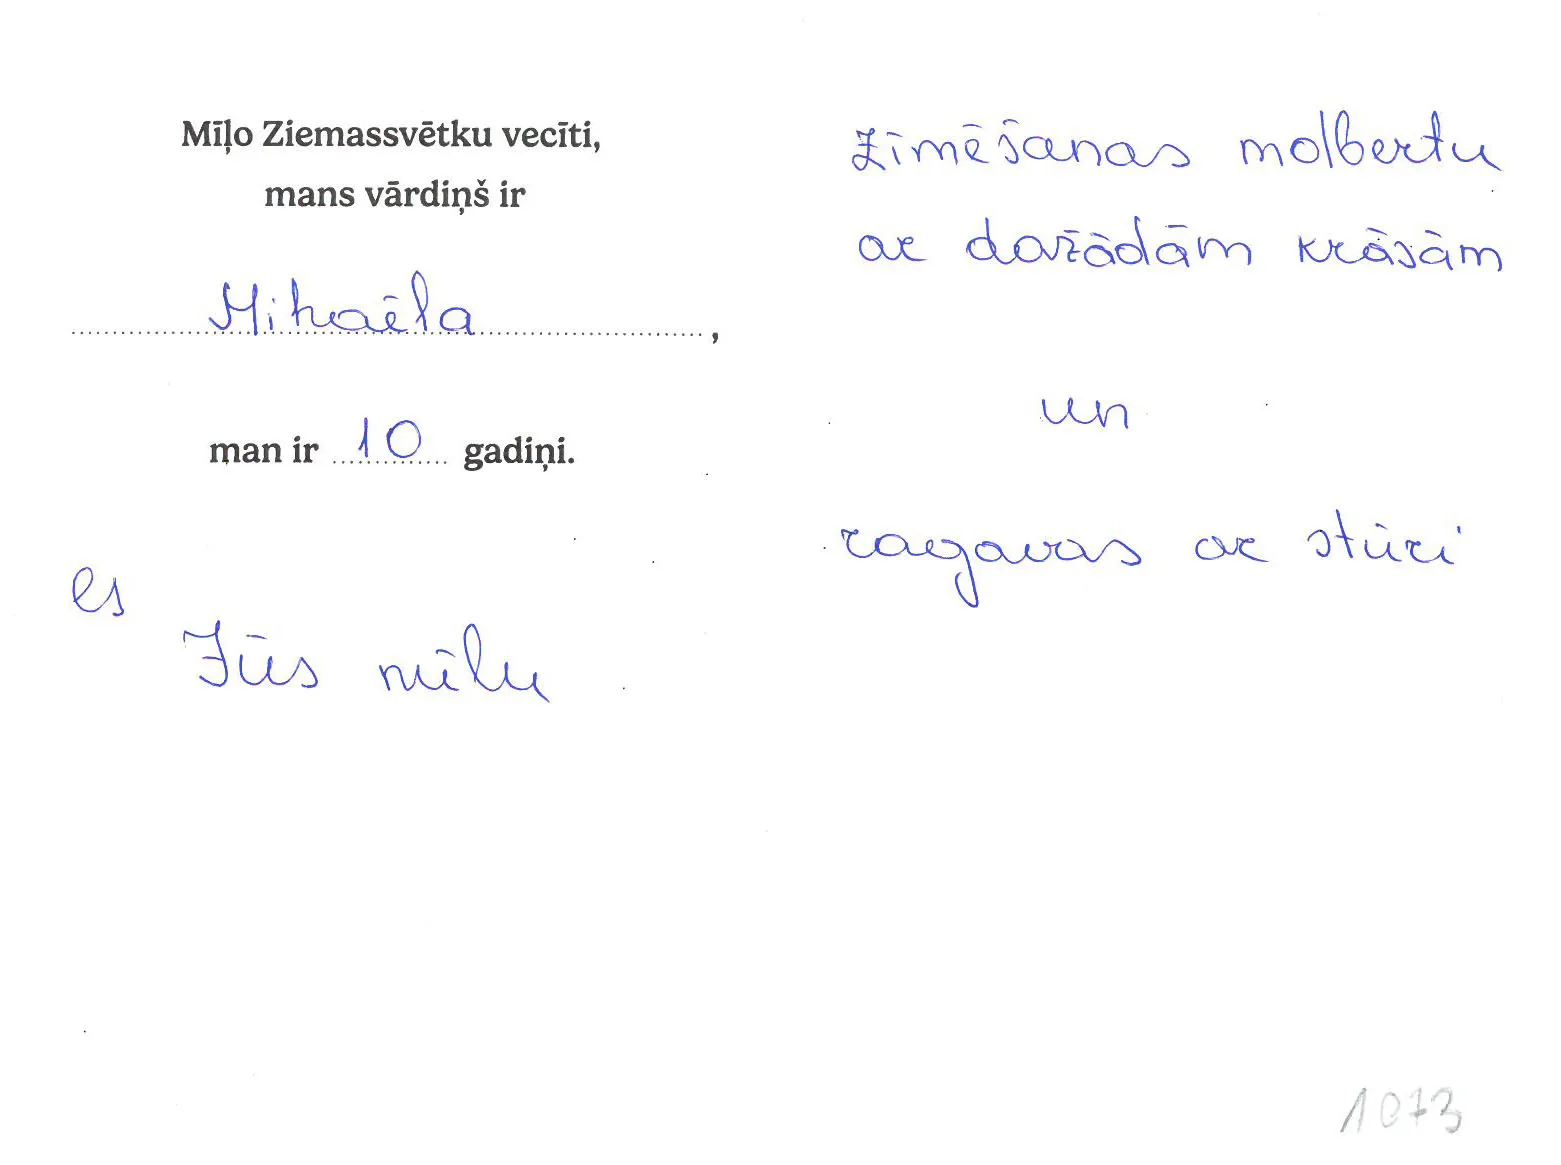 Mīļo Ziemassvētku vecīti,
mans vārdiņš ir
Mihaēla,
man ir 10 gadiņi.
es
Jūs mīlu
zīmēšanas molbertu
ar dažādām krāsām
un
ragavas ar stūri
1073